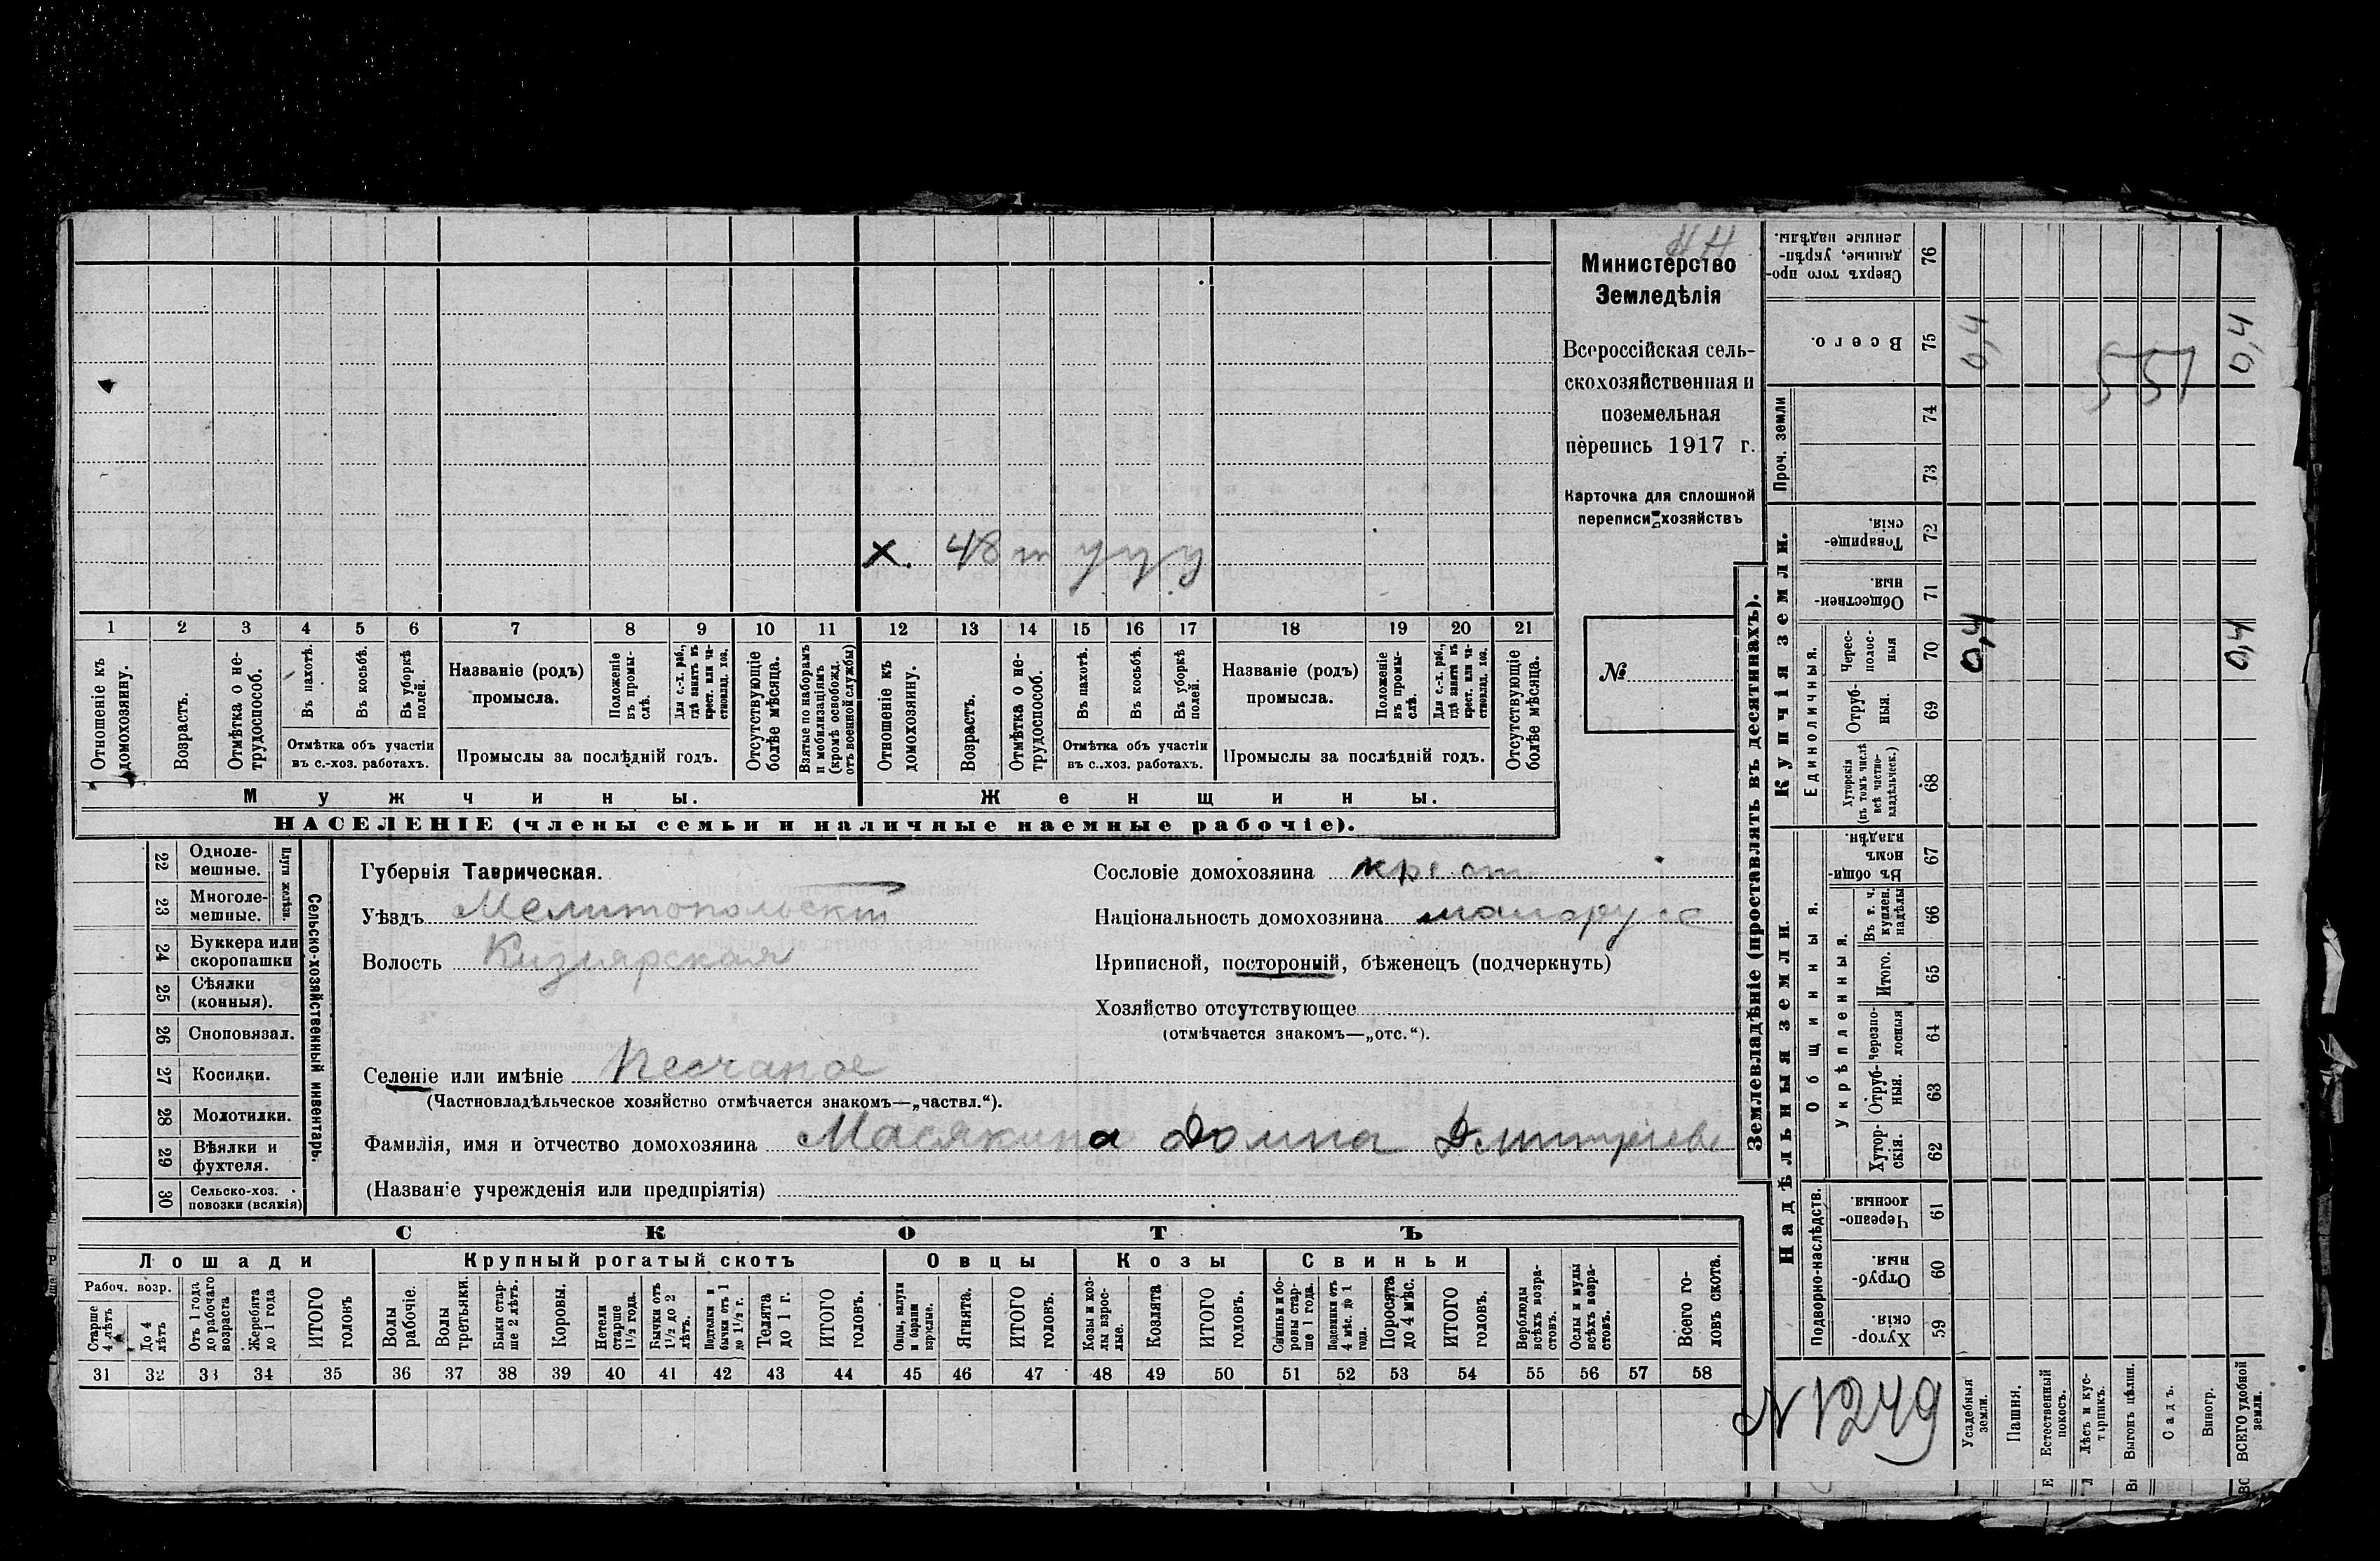 Н Н
Министерство
Земледѣлія
Всероссійская сель-
скохозяйственная и
поземельная
перепись 1917 г.
Карточка для сплошной
переписи хозяйствъ
№
х. 48 т у у у
1 2 3 4 5 6 7 8 9 10 11 12 13 14 15 16 17 18 19 20 21
Отношеніе къ домохозяину.
Возрастъ.
Отмѣтка о не-трудоспособ.
Въ пахотѣ.
Въ косьбѣ.
Въ уборкѣ полей.
Отмѣтка объ участіи
въ с.-хоз. работахъ.
Названіе (родъ)
промысла.
Положеніе въ промы-слѣ.
Для с.-х. раб., гдѣ занятъ въ крест. или ча-стновлад. хоз.
Промыслы за послѣдній годъ.
Отсутствующіе болѣе мѣсяца.
Взятые по наборамъ и мобилизаціямъ (кромѣ освобожд. отъ военной службы)
Отношеніе къ домохозяину.
Возрастъ.
Отмѣтка о не-трудоспособ.
Въ пахотѣ.
Въ косьбѣ.
Въ уборкѣ полей.
Отмѣтка объ участіи
въ с.-хоз. работахъ.
Названіе (родъ)
промысла.
Положеніе въ промы-слѣ.
Для с.-х. раб., гдѣ занятъ въ крест. или ча-стновлад. хоз.
Промыслы за послѣдній годъ.
Отсутствующіе болѣе мѣсяца.
Мужчины.
Женщины.
НАСЕЛЕНІЕ (члены семьи и наличные наемные рабочіе).
22 Одноле-мешные.
23 Многоле-мешные.
Плуги желѣзн.
24 Буккера или скоропашки
25 Сѣялки (конныя).
26 Сноповязал.
27 Косилки.
28 Молотилки.
29 Вѣялки и фухтеля.
30 Сельско-хоз. повозки (всякія)
Сельско-хозяйственный инвентарь.
Губернія Таврическая.
Уѣздъ Мелитопольскій
Волость Кизіярская
Селеніе или имѣніе Песчаное
(Частновладѣльческое хозяйство отмѣчается знакомъ—„частвл.“).
Фамилія, имя и отчество домохозяина Масякина Домна Дмитріев
(Названіе учрежденія или предпріятія)
Сословіе домохозяина крест
Національность домохозяина малорус
Приписной, посторонній, бѣженецъ (подчеркнуть)
Хозяйство отсутствующее
(отмѣчается знакомъ—„отс.“).
СКОТЪ
Лошади
Крупный рогатый скотъ
Овцы
Козы
Свиньи
Рабоч. возр.
Старше 4 лѣтъ
До 4 лѣтъ
Отъ 1 года до рабочаго возраста
Жеребята до 1 года
ИТОГО головъ
Волы рабочіе.
Волы третьяки.
Быки стар-ше 2 лѣтъ.
Коровы.
Нетели старше 1½ года.
Бычки отъ 1½ до 2 лѣтъ.
Подтелки и бычки отъ 1 до 1½ г.
Телята до 1 г.
ИТОГО головъ.
Овцы, валухи и бараны взрослые.
Ягнята.
ИТОГО головъ.
Козы и коз-лы взрос-лые.
Козлята
ИТОГО головъ.
Свиньи и бо-ровы стар-ше 1 года.
Подсвинки отъ 4 мѣс. до 1 года.
Поросята до 4 мѣс.
ИТОГО головъ.
Верблюды всѣхъ возра-стовъ.
Ослы и мулы всѣхъ возра-стовъ.
Всего го-ловъ скота.
31 32 33 34 35 36 37 38 39 40 41 42 43 44 45 46 47 48 49 50 51 52 53 54 55 56 57 58
Землевладѣніе (проставлять въ десятинахъ).
Надѣльныя земли.
Купчія земли.
Проч. земли
Подворно-наслѣдств.
Общинныя.
Укрѣпленныя.
Единоличныя.
Сверхъ того про-данные, укрѣп-ленные надѣлы. 76
Всего. 75
74
73
Товарище-скія. 72
Обществен-ныя. 71
Черес-полос-ныя 70
Отруб-ныя. 69
Хуторскія (въ томъ числѣ всѣ частно-владѣльческ.) 68
Въ общи-номъ владѣн. 67
Въ т. ч. куплен. надѣлы 66
Итого. 65
Черезпо-лосныя 64
Отруб-ныя. 63
Хутор-скія. 62
Черезпо-лосныя 61
Отруб-ныя. 60
Хутор-скія. 59
0,4
0,4
551
0,4
0,4
N 1249
Усадебныя земли.
Пашня.
Естественный покосъ.
Лѣсъ и кус-тарникъ.
Выгонъ цѣлин.
Садъ.
Виногр.
ВСЕГО удобной земли.